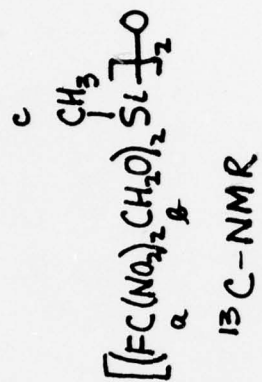 c
CH₃
[[(FC(NO₂)₂CH₂O)₂Si]₂O
a b
¹³C-NMR